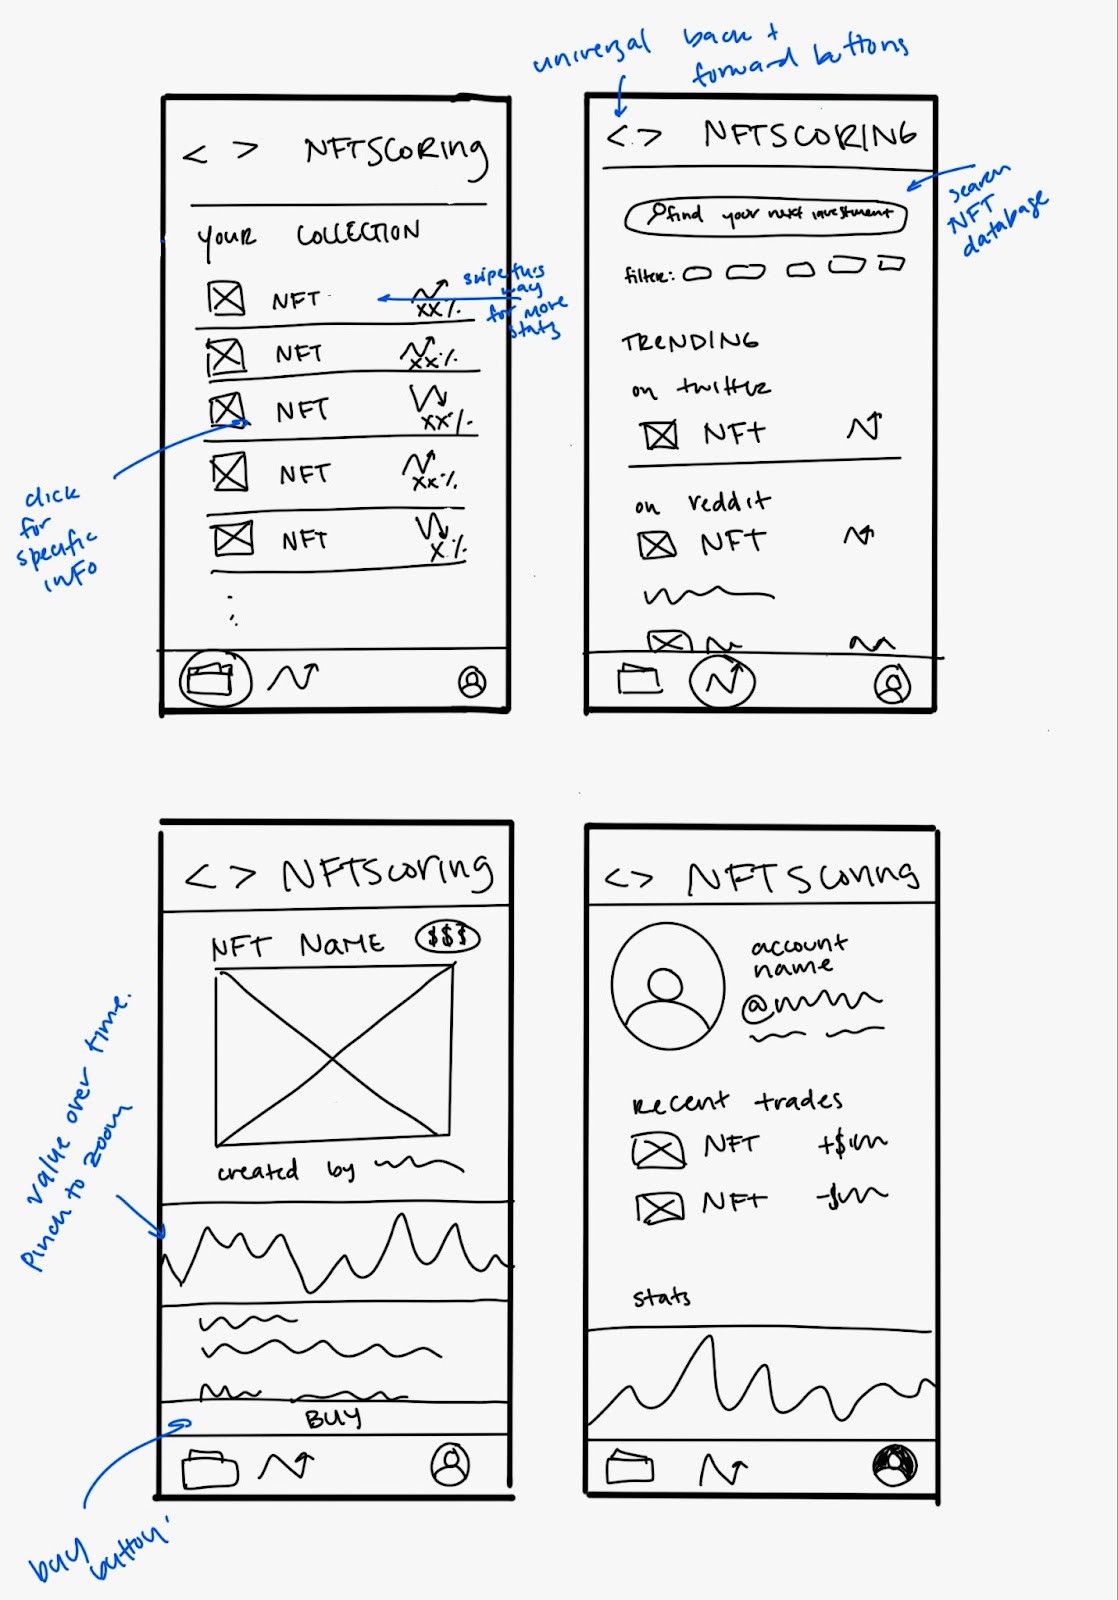 universal back +
forward buttons
< > NFTSCORING
YOUR COLLECTION
NFT
XX%
swipe this
way
for more
stats
NFT
XX%
NFT
XX%
NFT
XX%
NFT
X%
click
for
specific
info
< > NFTSCORING
find your next investment
search
NFT
database
filter:
TRENDING
on twitter
NFT
on reddit
NFT
< > NFTSCORING
NFT NAME $$$
created by
value over time.
Pinch to zoom
BUY
buy
button
< > NFTSCORING
account
name
@
Recent trades
NFT +$
NFT -$
stats